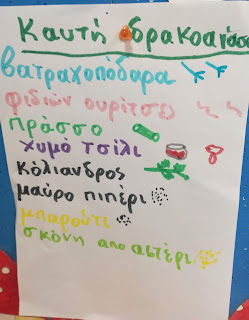 Καυτή δρακοσιάσο
βατραχοπόδαρα
φιδιών ουρίτσες
πράσσο
χυμό τσίλι
κόλιανδρος
μαύρο πιπέρι
μπαρούτι
σκόνη απο αστέρι